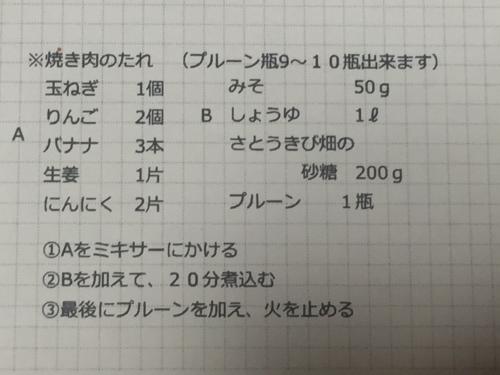 ※焼き肉のたれ　（プルーン瓶9～１０瓶出来ます）
玉ねぎ　1個　みそ　50ｇ
りんご　2個　B　しょうゆ　1ℓ
A　バナナ　3本　さとうきび畑の
生姜　1片　砂糖　200ｇ
にんにく　2片　プルーン　１瓶
①Aをミキサーにかける
②Bを加えて、２０分煮込む
③最後にプルーンを加え、火を止める